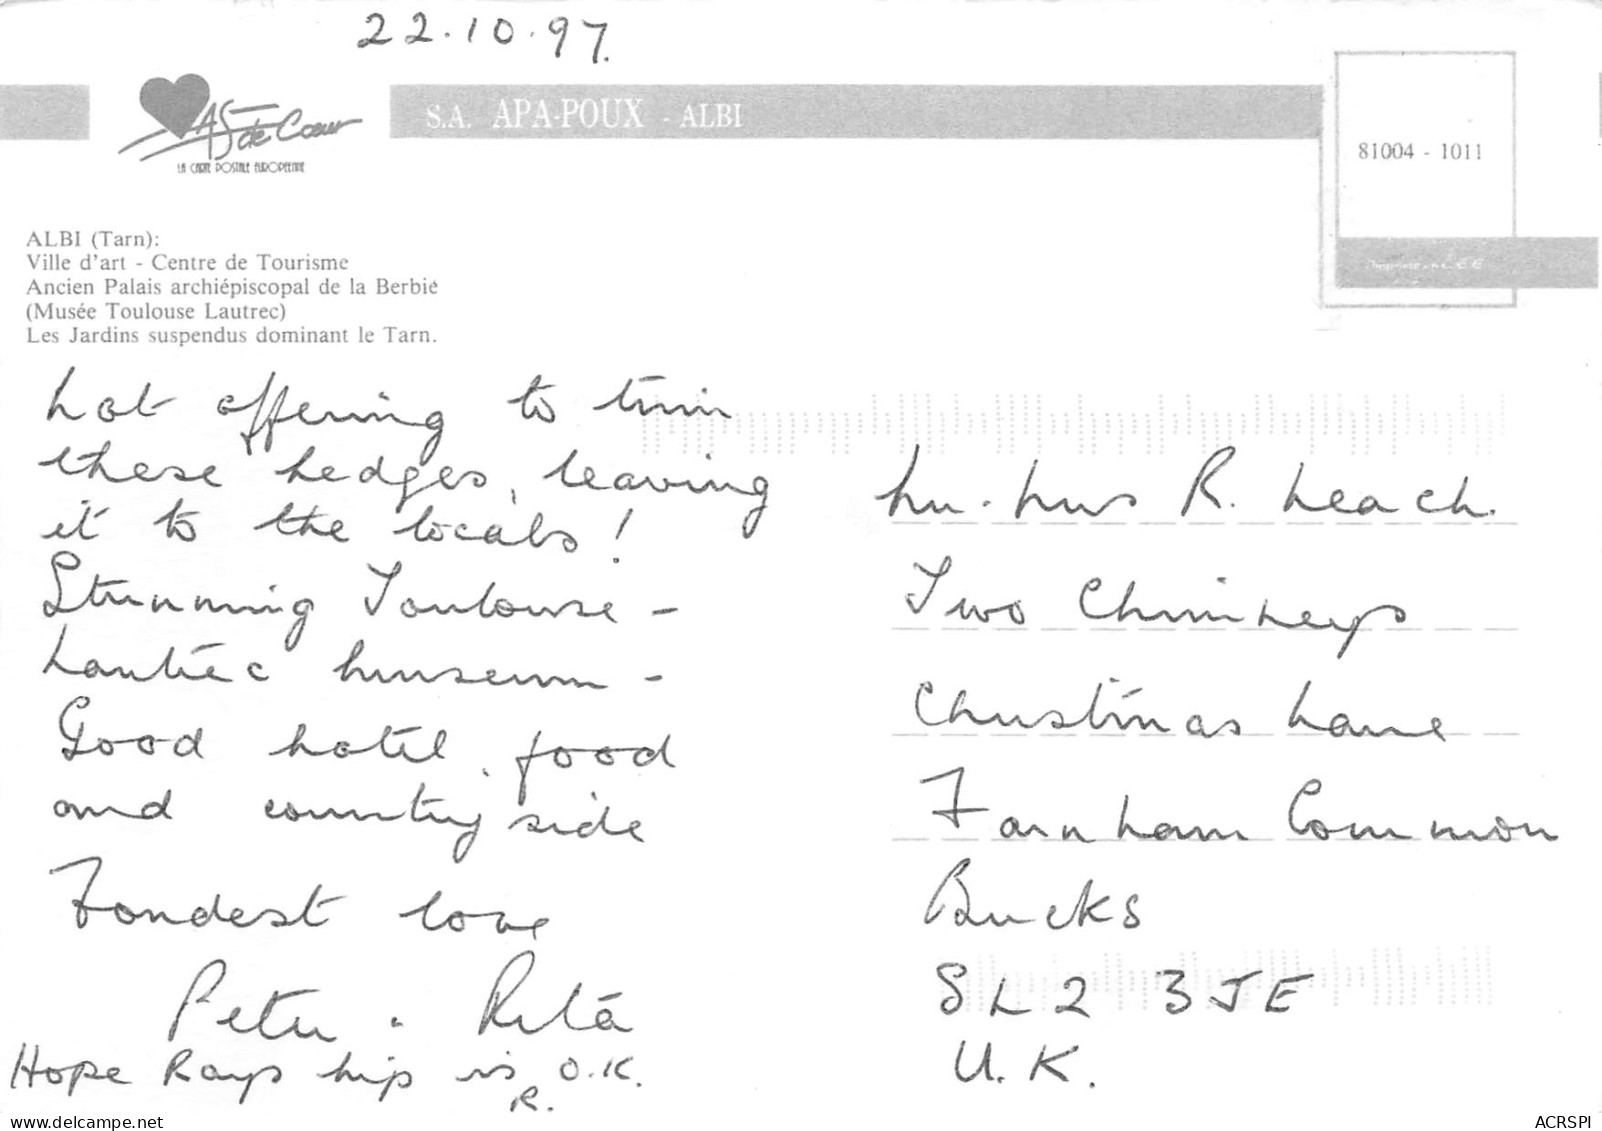 22.10.97.
AS de Cœur
LA CARTE POSTALE EUROPEENNE
S.A. APA-POUX - ALBI
81004 - 1011
ALBI (Tarn):
Ville d'art - Centre de Tourisme
Ancien Palais archiépiscopal de la Berbie
(Musée Toulouse Lautrec)
Les Jardins suspendus dominant le Tarn.
Not offering to trim
these hedges, leaving
it to the locals!
Stunning Toulouse -
Lautrec Museum -
Good hotel, food
and countryside
Fondest love
Peter & Rita
Hope Rays hip is O.K.
R.
Mr. Mrs R. Leach.
Two Chimneys
Christmas Lane
Farnham Common
Bucks
SL2 3JE
U.K.
ACRSPI